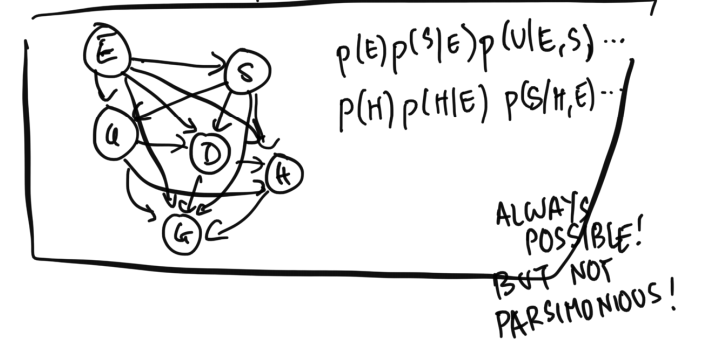 E
S
U
D
H
G
p(E)p(S|E)p(U|E,S) ...
p(H)p(H|E) p(S|H,E)...
ALWAYS
POSSIBLE!
BUT NOT
PARSIMONIOUS!